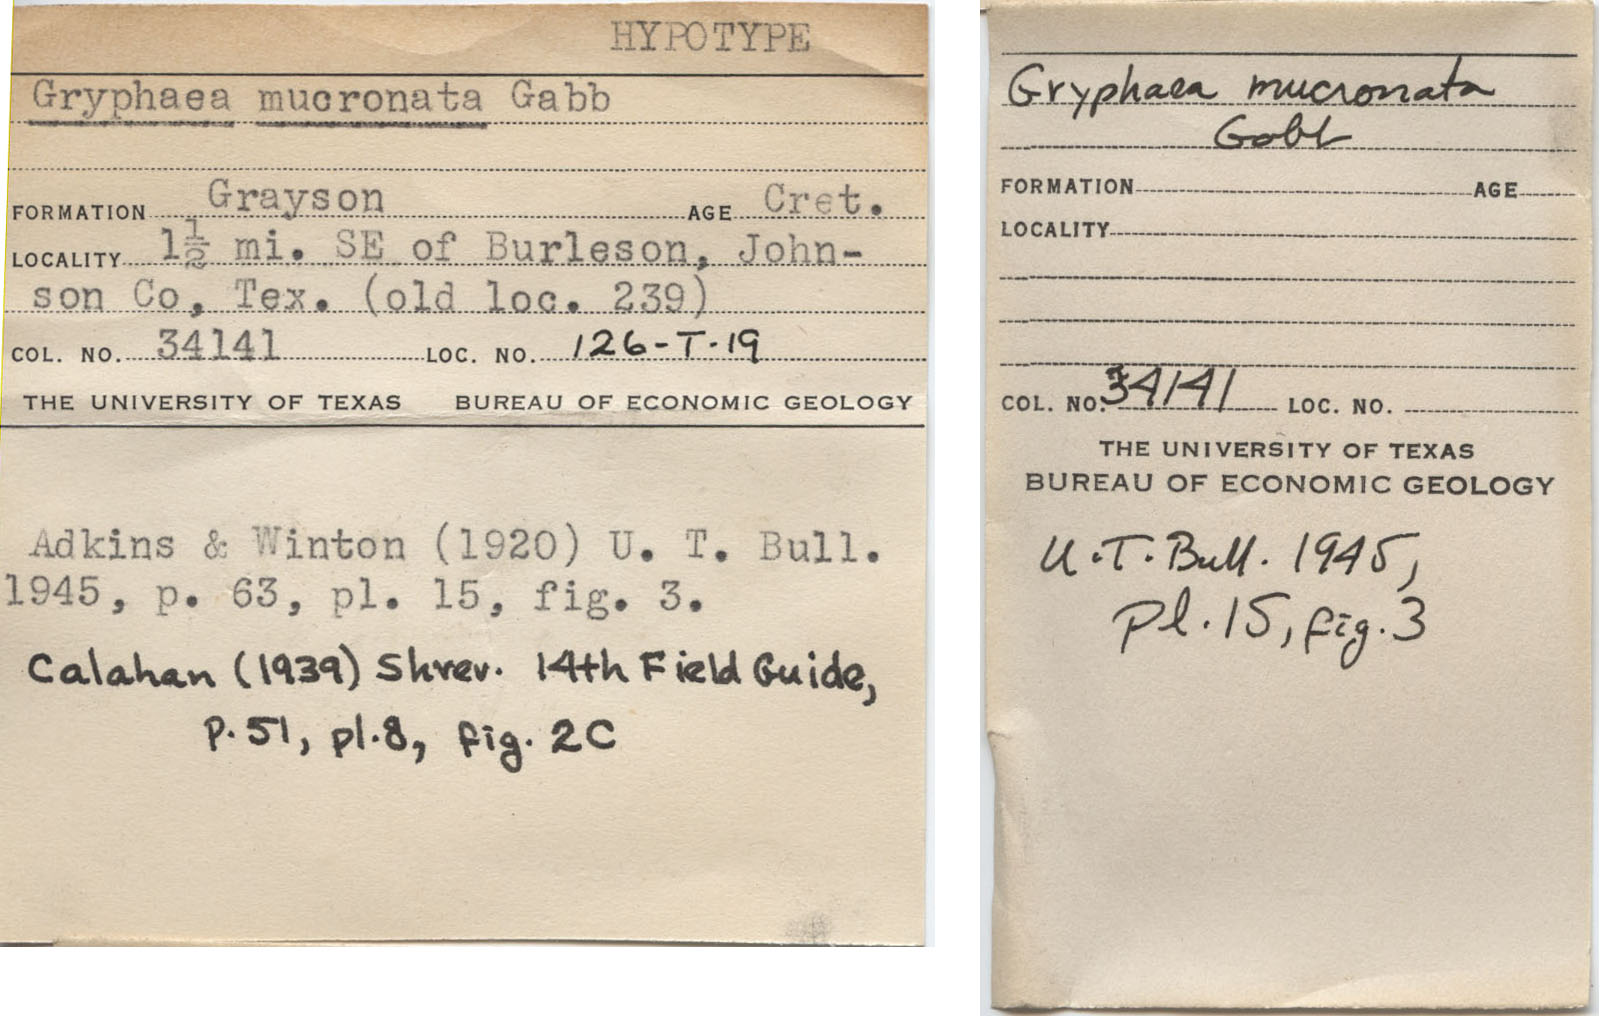 HYPOTYPE
Gryphaea mucronata Gabb
FORMATION Grayson AGE Cret.
LOCALITY 1½ mi. SE of Burleson, John-
son Co, Tex. (old loc. 239)
COL. NO. 34141 LOC. NO. 126-T-19
THE UNIVERSITY OF TEXAS BUREAU OF ECONOMIC GEOLOGY
Adkins & Winton (1920) U. T. Bull.
1945, p. 63, pl. 15, fig. 3.
Calahan (1939) Shrev. 14th Field Guide,
p. 51, pl. 8, fig. 2C
Gryphaea mucronata
Gabb
FORMATION AGE
LOCALITY
COL. NO. 34141 LOC. NO.
THE UNIVERSITY OF TEXAS
BUREAU OF ECONOMIC GEOLOGY
U.T. Bull. 1945,
pl. 15, fig. 3